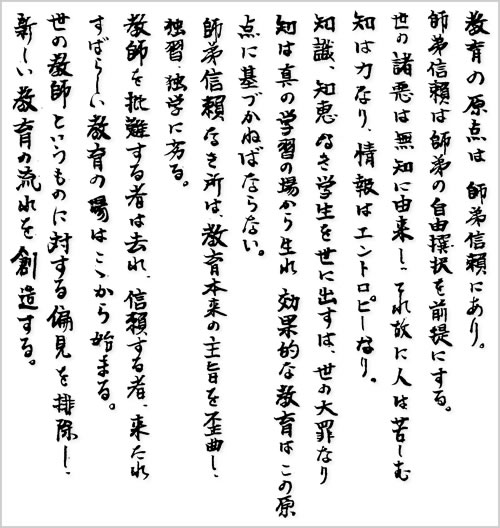 教育の原点は 師弟信頼にあり。
師弟信頼は師弟の自由撰択を前提にする。
世の諸悪は無知に由来し、それ故に人は苦しむ
知は力なり、情報はエントロピーなり。
知識、知恵なき学生を世に出すは、世の大罪なり
知は真の学習の場から生れ 効果的な教育はこの原
点に基づかねばならない。
師弟信頼なき所は、教育本来の主旨を歪曲し、
独習、独学に劣る。
教師を批難する者は去れ、信頼する者、来たれ
すばらしい教育の場はこゝから始まる。
世の教師というものに対する偏見を排除し、
新しい教育の流れを創造する。